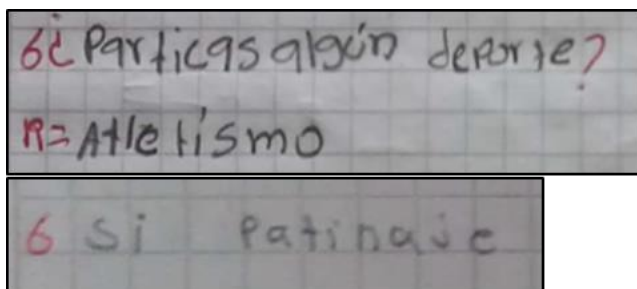 6¿Particas algún deporte?
R=Atletísmo
6 Si Patinaje